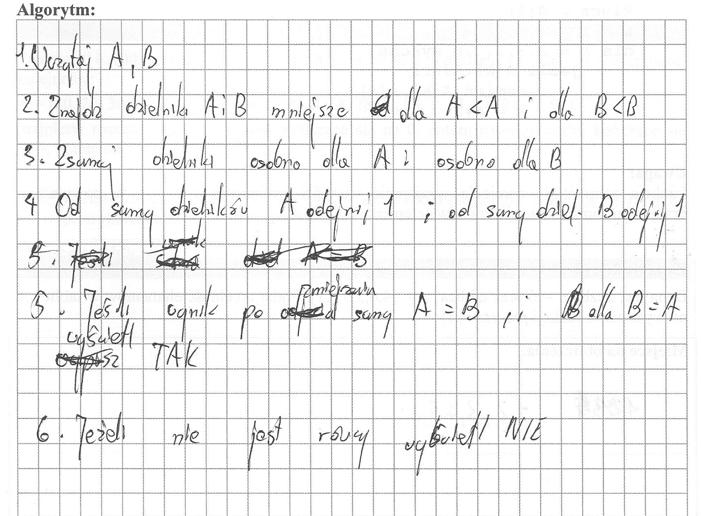 Algorytm:
1. Wczytaj A, B
2. Znajdz dzielniki A i B mniejsze dla A < A i dla B < B
3. Zsumuj dzielniki osobno dla A i osobno dla B
4 Od sumy dzielników A odejmij 1 i od sumy dziel. B odejmij 1
5. Jeśli A = B
5. Jeśli wynik po zmniejszeniu sumy A = B , i dla B = A
wyświetl TAK
6. Jeżeli nie jest równy wyświetl NIE